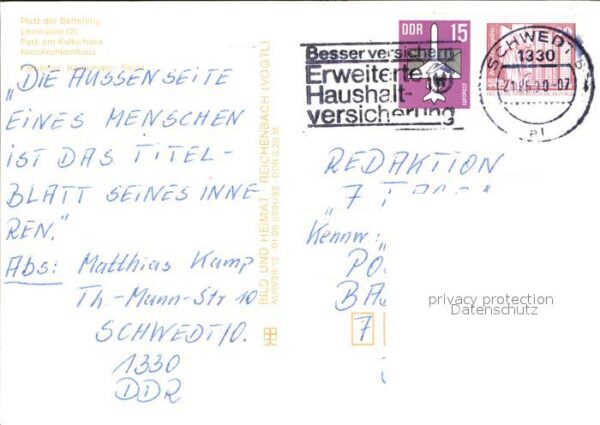 Platz der Befreiung
Leninallee (2)
Park am Kulturhaus
Kreiskrankenhaus
„DIE AUSSENSEITE
EINES MENSCHEN
IST DAS TITEL-
BLATT SEINES INNE
REN.“
Abs: Matthias Kamp
Th.-Mann-Str 10
SCHWEDT/O.
1330
DDR
BILD UND HEIMAT REICHENBACH (VOGTL)
DDR 15
LUFTPOST
Besser versichern
Erweiterte
Haushalt-
versicherung
SCHWEDT
1330
REDAKTION
"7
Kennw:
PO
BA
7
privacy protection
Datenschutz